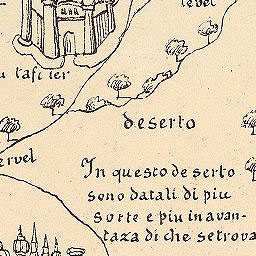 level
deserto
ervel
In questo deserto
sono datali di piu
sorte e piu in avan-
taza di che se trova